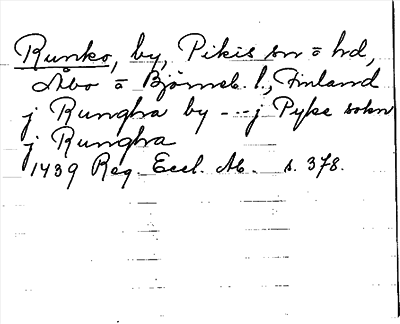 Runko, by, Pikis sn o hd,
Åbo o Björneb. l., Finland
j Rungha by --- j Pyke sokn
j Rungha
1439 Reg. Eccl. Ab. s. 378.